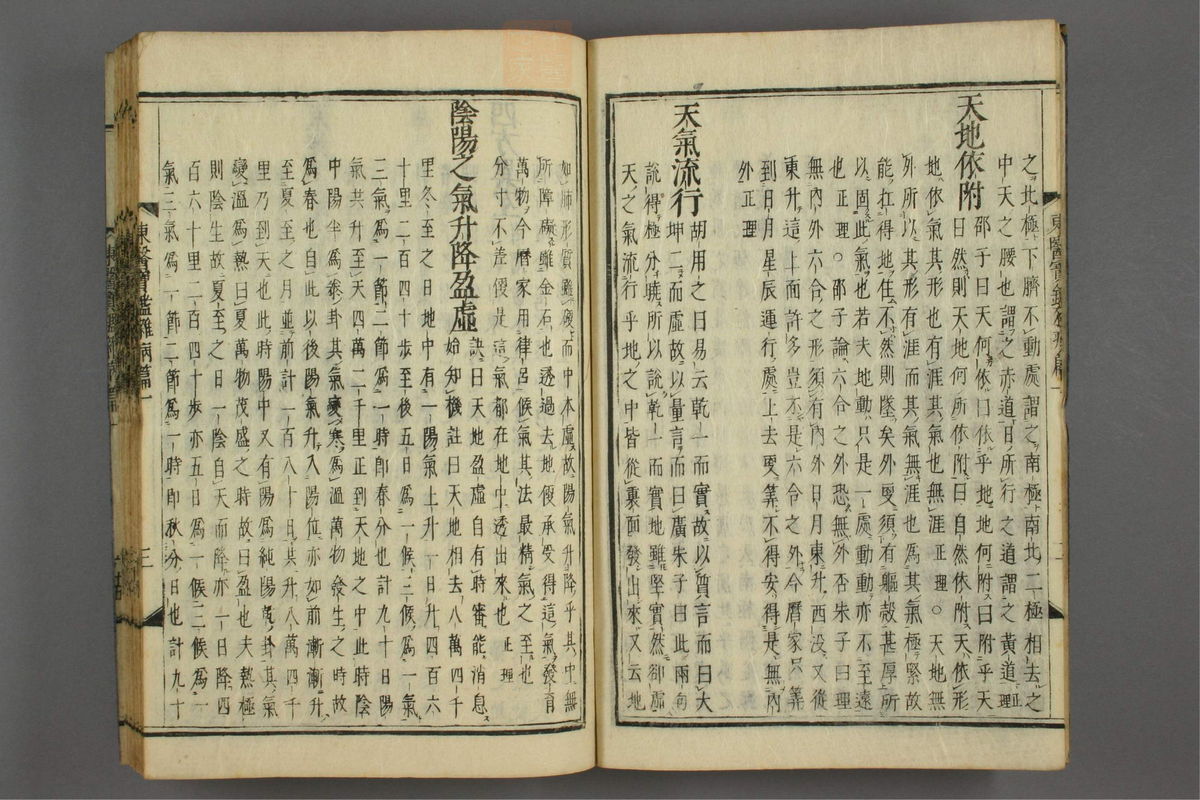 之北極下臍不動處謂之南極南北二極相去之
中天之腰也謂之赤道日所行之道謂之黃道正理
天地依附
邵子曰天何依曰依乎地地何附曰附乎天
曰然則天地何所依附曰自然依附天依形
地依氣其形也有涯其氣也無涯正理○天地無
外所以其形有涯而其氣無涯也為其氣極緊故
能扛得地住不然則墜矣外更須有軀殼甚厚所
以固此氣也若夫地動只是一處動動亦不至遠
也正理○邵子論六合之外恐無外否朱子曰理
無內外六合之形須有內外日月東升西沒又從
東升這上面許多豈不是六合之外今曆家只筭
到日月星辰運行處上去更筭不得安得是無內
外正理
天氣流行
胡用之曰易云乾一而實故以質言而曰大
坤二而虛故以量言而曰廣朱子曰此兩句
說得極分曉所以說乾一而實地雖堅實然卻虛
天之氣流行乎地之中皆從裏面發出來又云地
如肺形質雖硬而中本虛故陽氣升降乎其中無
所障礙雖金石也透過去地便承受得這氣發育
萬物今曆家用律呂候氣其法最精氣之至也
分寸不差便是這氣都在地中透出來也正理
陰陽之氣升降盈虛
訣曰天地盈虛自有時審能消息
始知機註曰天地相去八萬四千
里冬至之日地中有一陽氣上升一日升四百六
十里二百四十步至後五日為一候三候為一氣
二氣為一節二節為一時即春分也計九十日陽
氣共升至天四萬二千里正到天地之中此時陰
中陽半為泰卦其氣變寒為溫萬物發生之時故
為春也自此以後陽氣升入陽位亦如前漸漸升
至夏至之月並前計一百八十日共升八萬四千
里乃到天也此時陽中又有陽為純陽乾卦其氣
變溫為熱曰夏萬物茂盛之時故曰盈也夫熱極
則陰生故夏至之日一陰自天而降亦一日降四
百六十里二百四十步亦五日為一候三候為一
氣三氣為一節二節為一時即秋分日也計九十
東醫寶鑑雜病篇一
三